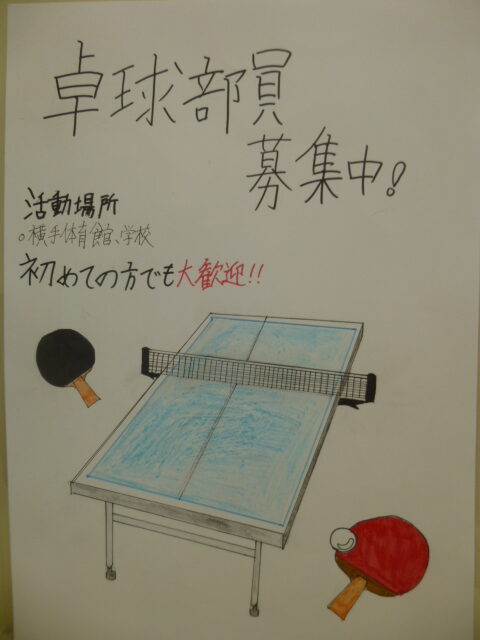 卓球部員
募集中!
活動場所
◦横手体育館、学校
初めての方でも大歓迎!!